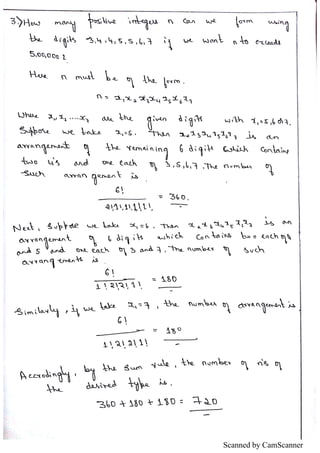 3) How many positive integers n can we form using
the digits 3,4,4,5,5,6,7 if we want n to exceeds
5,00,000?
Here n must be of the form.
n = x₁ x₂ x₃ x₄ x₅ x₆ x₇
Where x₁ x₂ ..... x₇ are the given digits with x₁=5,6 or 7.
Suppose we take x₁=5. Then x₂ x₃ x₄ x₅ x₆ x₇ is an
arrangement of the remaining 6 digits which contains
two 4's and one each of 3,5,6,7. The number of
such arrangement is.
6!
= 360.
2!1!1!1!1!
Next, Suppose we take x₁=6. Then x₂ x₃ x₄ x₅ x₆ x₇ is an
arrangement of 6 digits which contains two each of 4
and 5 and one each of 3 and 7. The number of such
arrangements is
6!
= 180
1!2!2!1!
Similarly, if we take x₁=7, the number of arrangement is
6!
= 180
1!2!2!1!
Accrodingly, by the sum rule, the number of n's of
the desired type is.
360 + 180 + 180 = 720
Scanned by CamScanner